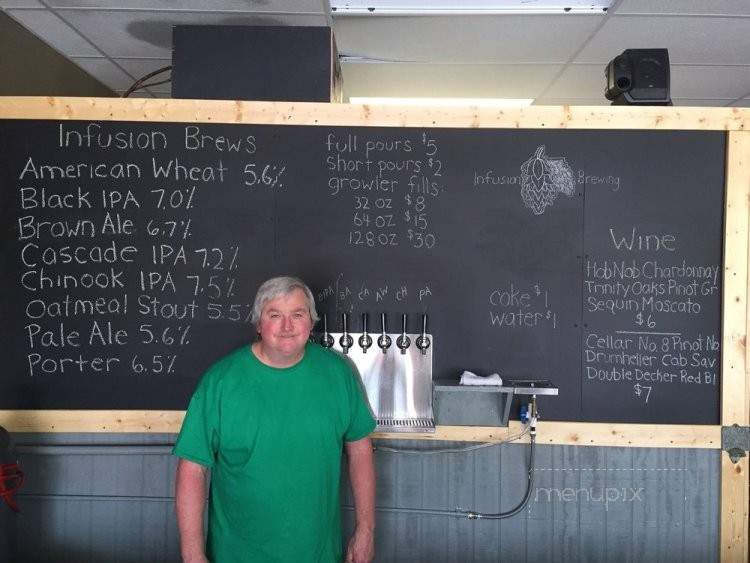 Infusion Brews
American Wheat 5.6%
Black IPA 7.0%
Brown Ale 6.7%
Cascade IPA 7.2%
Chinook IPA 7.5%
Oatmeal Stout 5.5
Pale Ale 5.6%
Porter 6.5%
full pours $5
short pours $2
growler fills:
32 oz $8
64 oz $15
128 oz $30
BA CA AW CH PA
Infusion Brewing
coke $1
water $1
Wine
HobNob Chardonnay
Trinity Oaks Pinot Gr
Sequin Moscato
$6
Cellar No. 8 Pinot No
Drumheller Cab Sav
Double Decker Red Bl
$7
menupix